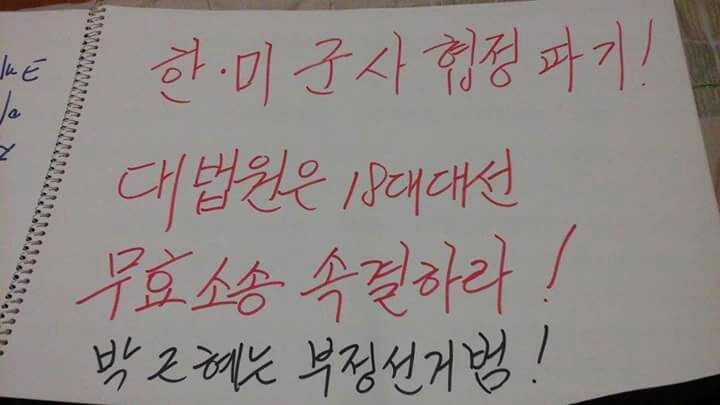 한·미 군사 협정 파기!
대법원은 18대대선
무효소송 속결하라!
박근혜는 부정선거범!